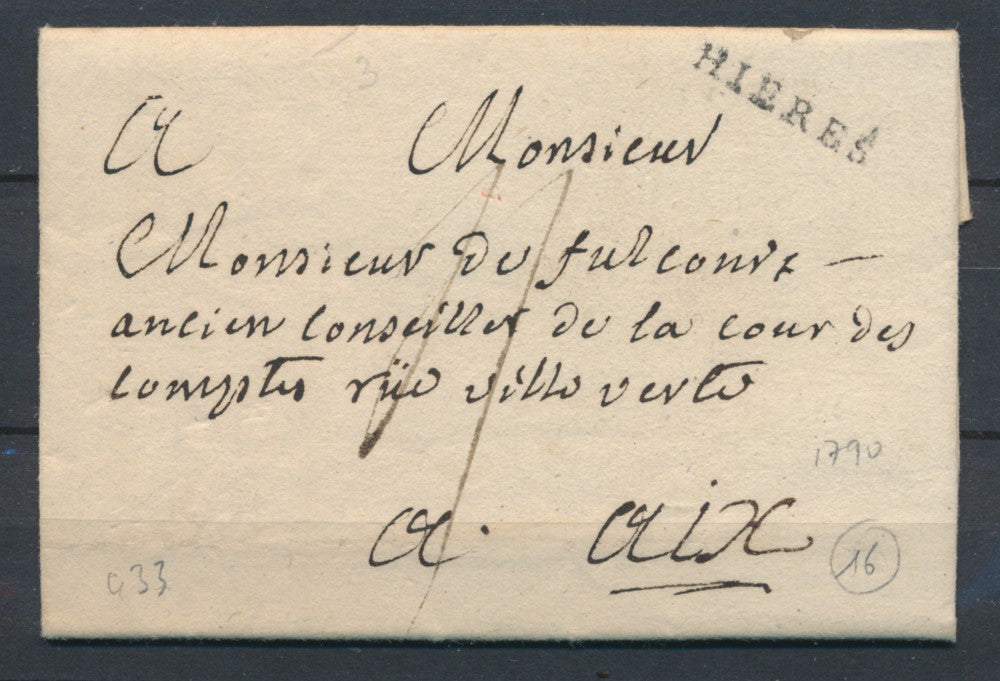 HIERES
A Monsieur
Monsieur de fulconis —
ancien Conseiller de la cour des
comptes rüe ville verte
1790
a. aix
16
433